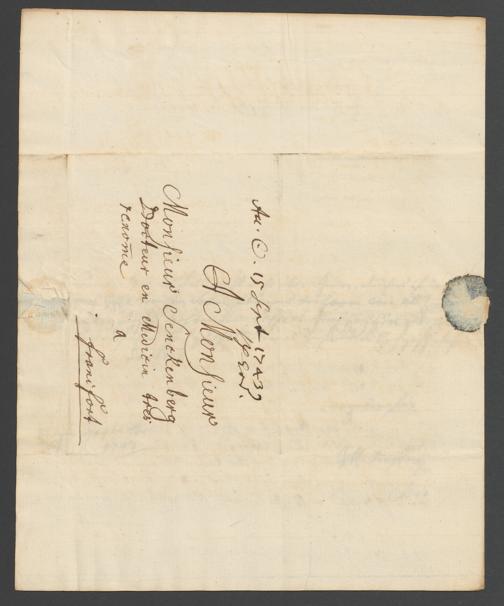 An. C. 15 Sept 1743
A Monsieur
Monsieur Senckenberg
Docteur en Medicin tres
renomé
a
francfort